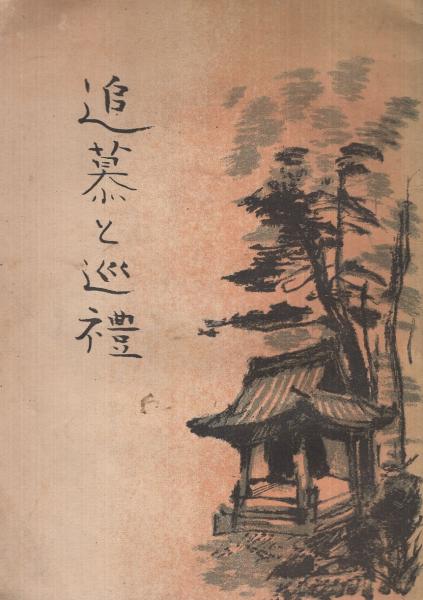 追慕と巡禮